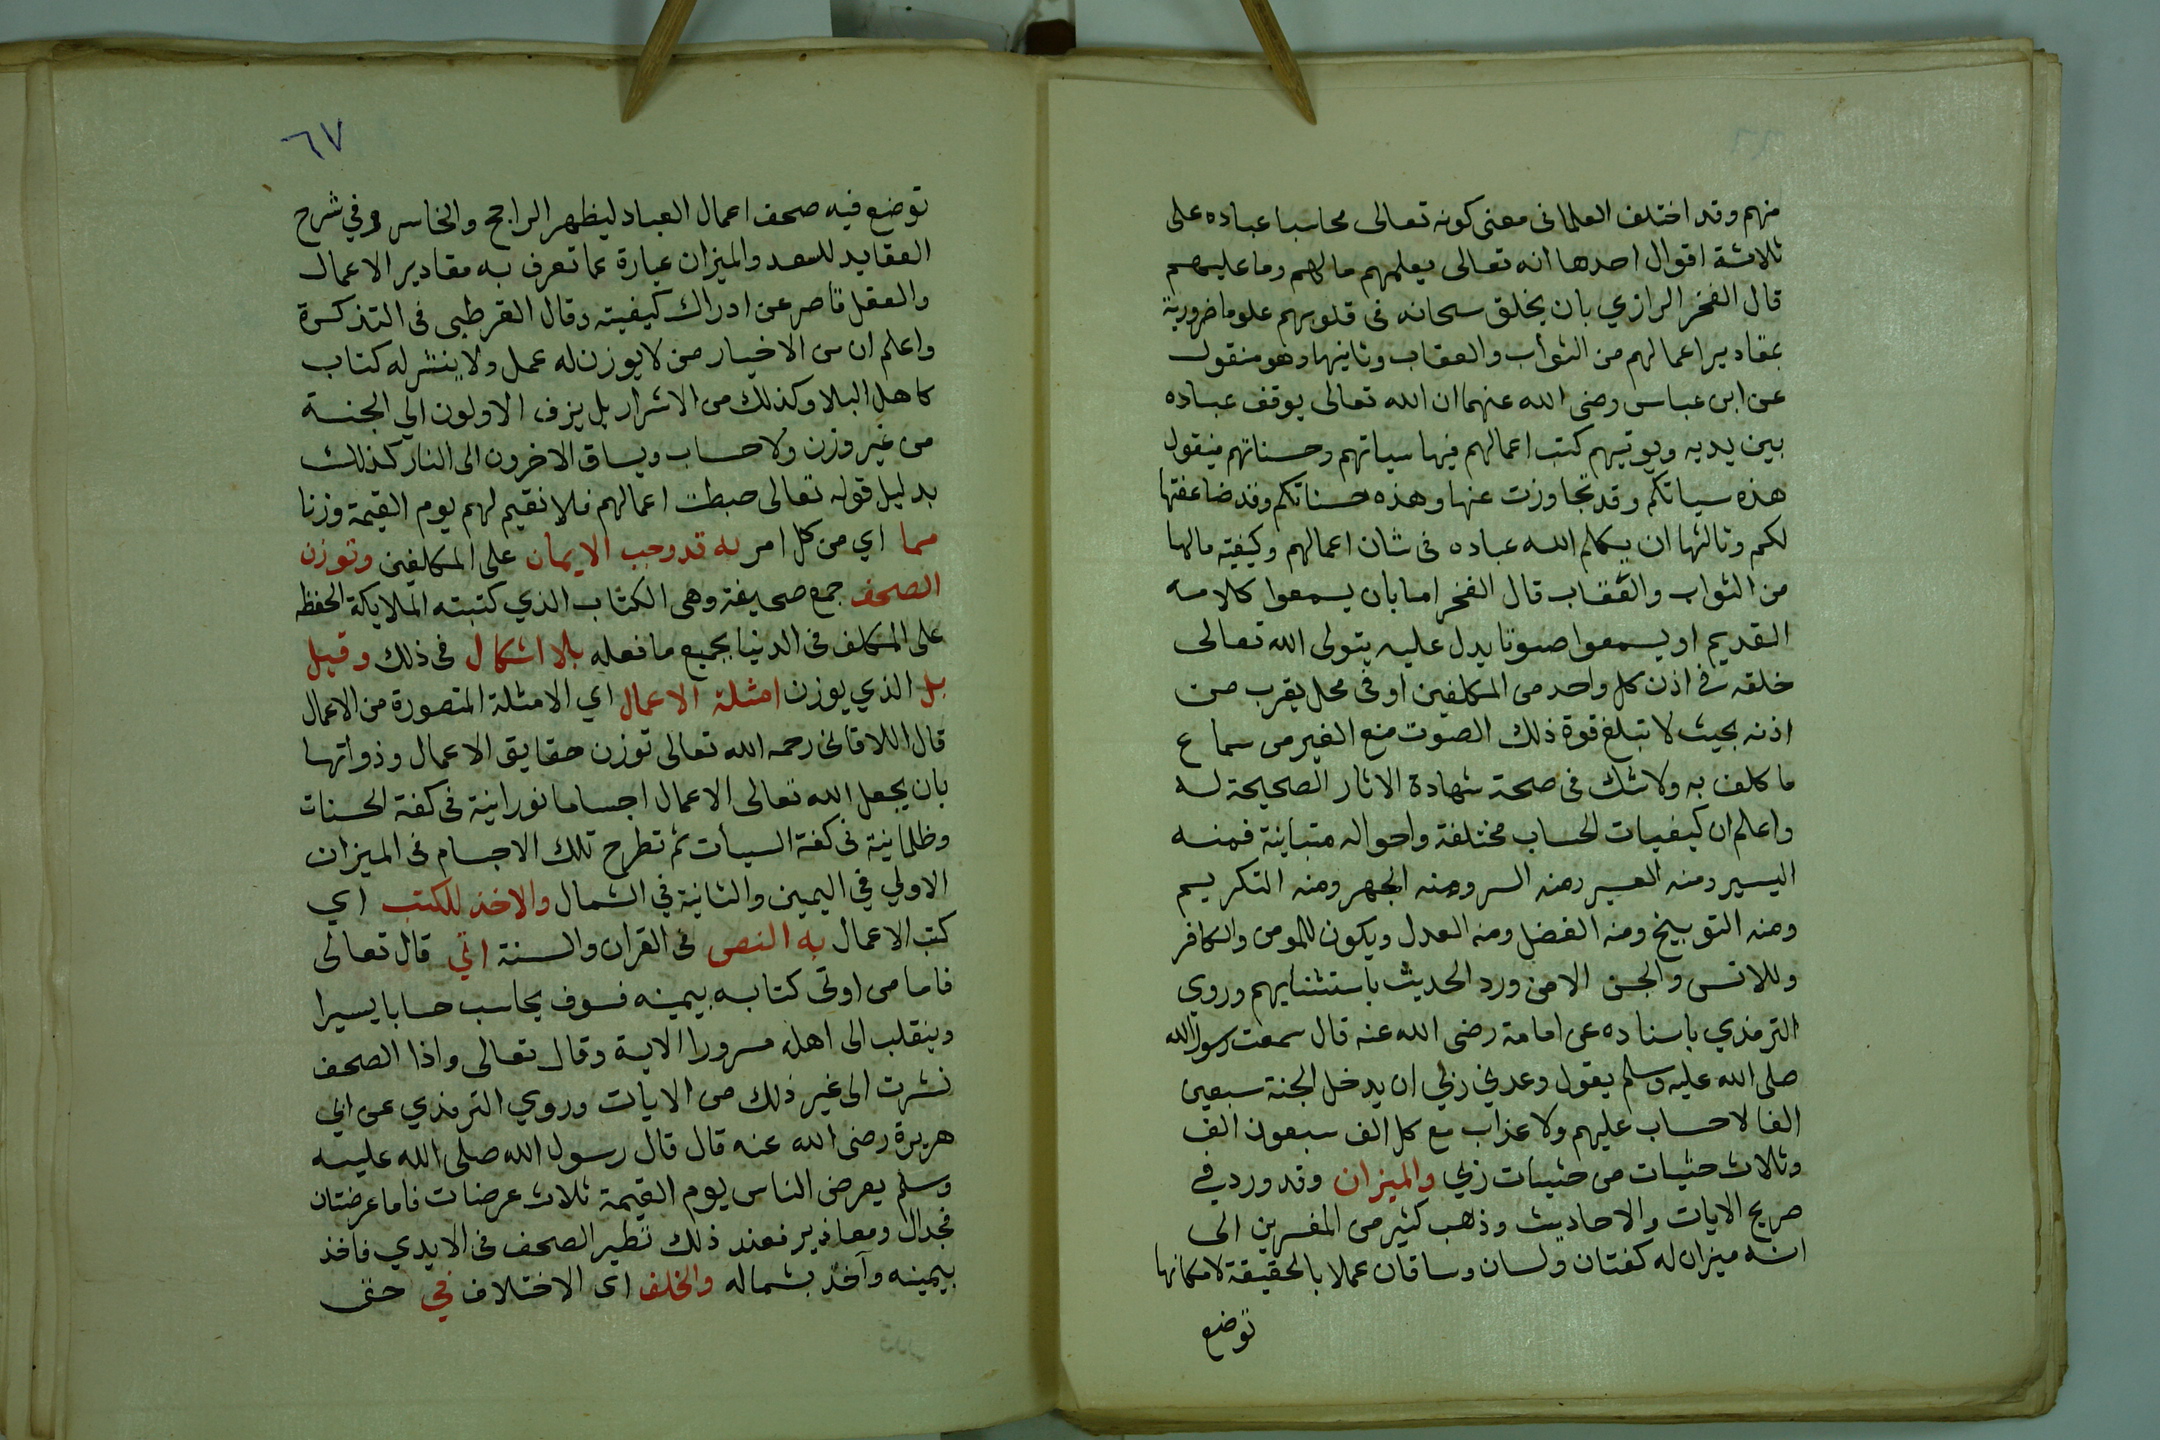 منهم وقد اختلف العلما فى معنى كونه تعالى محاسبا عباده على
ثلاثة اقوال احدها انه تعالى يعلمهم مالهم وما عليهم
قال الفخر الرازي بان يخلق سبحانه فى قلوبهم علوما ضرورية
بمقادير اعمالهم من الثواب والعقاب وثانيها وهو منقول
عن ابن عباس رضى الله عنهما ان الله تعالى يوقف عباده
بين يديه ويوتيهم كتب اعمالهم فيها سياتهم وحسناتهم فيقول
هذه سياتكم وقد تجاوزت عنها وهذه حسناتكم وقد ضاعفتها
لكم وثالثها ان يكلم الله عباده فى شان اعمالهم وكيفية مالها
من الثواب والعقاب قال الفخر اما بان يسمعوا كلامه
القديم او يسمعوا صوتا يدل عليه يتولى الله تعالى
خلقه فى اذن كل واحد من المكلفين او فى محل يقرب من
اذنه بحيث لا تبلغ قوة ذلك الصوت منع الغير من سماع
ما كلف به ولا شك فى صحة شهادة الاثار الصحيحة له
واعلم ان كيفيات الحساب مختلفة واحواله متباينة فمنه
اليسير ومنه العسير ومنه السر ومنه الجهر ومنه التكريم
ومنه التوبيخ ومنه الفضل ومنه العدل ويكون للمومن والكافر
وللانس والجن الا من ورد الحديث باستثنايهم وروى
الترمذي باسناده عن امامة رضى الله عنه قال سمعت رسول الله
صلى الله عليه وسلم يقول وعدني ربي ان يدخل الجنة سبعين
الفا لا حساب عليهم ولا عذاب مع كل الف سبعون الف
وثلاث حثيات من حثيات ربي والميزان وقد ورد في
صريح الايات والاحاديث وذهب كثير من المفسرين الى
انه ميزان له كفتان ولسان وساقان عملا بالحقيقة لامكانها
توضع
٦٧
توضع فيه صحف اعمال العباد ليظهر الراجح والخاسر وفي شرح
العقايد للسعد والميزان عبارة عما تعرف به مقادير الاعمال
والعقل قاصر عن ادراك كيفيته وقال القرطبى فى التذكرة
واعلم ان من الاخيار من لا يوزن له عمل ولا ينشر له كتاب
كاهل البلا وكذلك من الاشرار بل يزف الاولون الي الجنة
من غير وزن ولا حساب ويساق الاخرون الى النار كذلك
بدليل قوله تعالى حبطت اعمالهم فلا نقيم لهم يوم القيمة وزنا
مما اي من كل امر به قد وجب الايمان على المكلفين وتوزن
الصحف جمع صحيفة وهى الكتاب الذي كتبته الملايكة الحفظه
على المكلف فى الدنيا بجميع ما فعله بلا اشكال فى ذلك وقيل
بل الذي يوزن امثلة الاعمال اي الامثلة المتصورة من الاعمال
قال اللاقانى رحمه الله تعالى توزن حقايق الاعمال وذواتها
بان يجعل الله تعالى الاعمال اجساما نورانية فى كفة الحسنات
وظلمانية فى كفة السيأت ثم تطرح تلك الاجسام فى الميزان
الاولي في اليمين والثانية في الشمال والاخذ للكتب اي
كتب الاعمال به النص فى القران والسنة اتي قال تعالى
فاما من اوتى كتابه بيمينه فسوف يحاسب حسابا يسيرا
وينقلب الى اهله مسرورا الاية وقال تعالى واذا الصحف
نشرت الى غير ذلك من الايات وروي الترمذي عن ابي
هريرة رضى الله عنه قال قال رسول الله صلى الله عليه
وسلم يعرض الناس يوم القيمة ثلاث عرضات فاما عرضتان
فجدال ومعاذير فعند ذلك تطير الصحف فى الايدي فاخذ
بيمينه وآخذ بشماله والخلف اى الاختلاف في حق